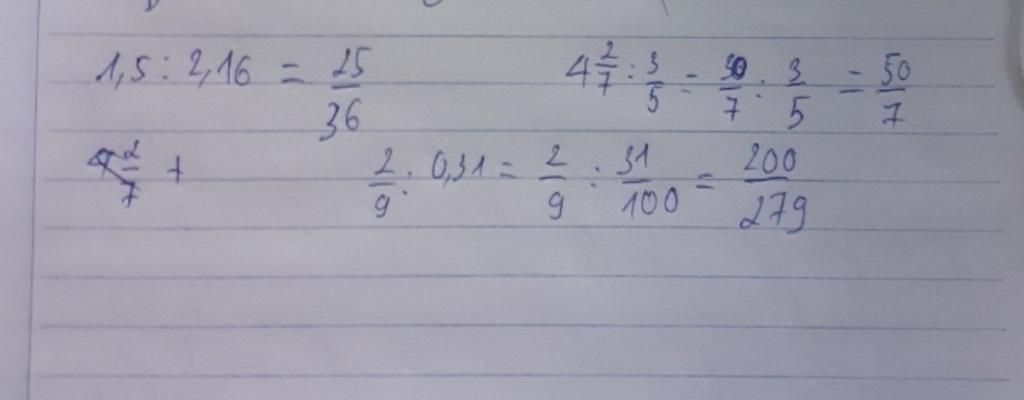 1,5 : 2,16 = 25/36 4 2/7 : 3/5 = 30/7 : 3/5 = 50/7
2/7 + 2/9 : 0,31 = 2/9 : 31/100 = 200/279